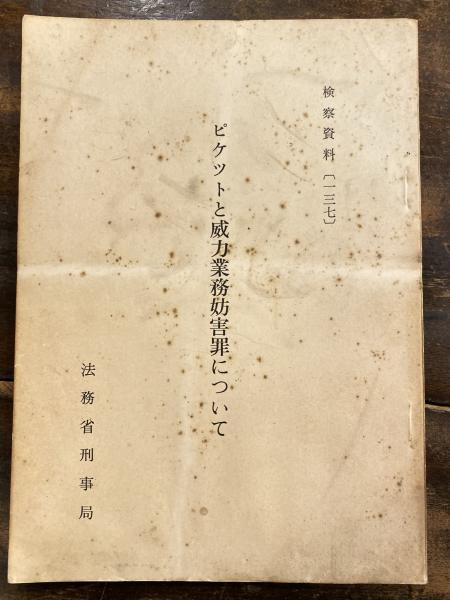 検察資料〔一三七〕
ピケツトと威力業務妨害罪について
法務省刑事局